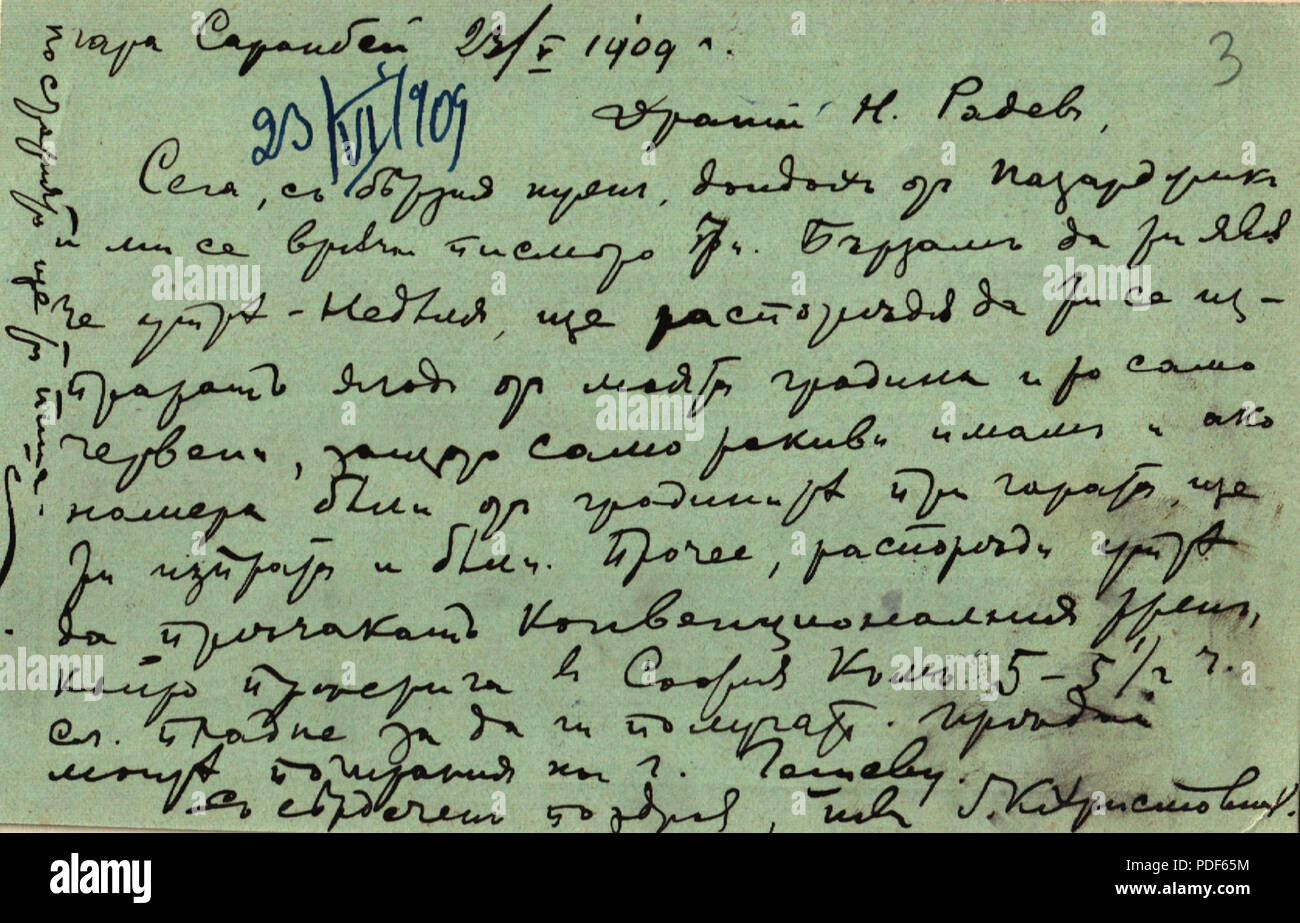 гара Сараибей 23/V 1909 г.
3
23/VII/1909
Драгий Н. Радевъ,
Сега, съ бързия тренъ, дойдохъ отъ Пазарджикъ
и ми се връчи писмото Ти. Бързамъ да Ти явя
че утрѣ - Недѣля, ще распоредя да Ти се из-
пратятъ ягоди отъ моята градина и то само
червени, защото само такива имамъ и ако
намеря бѣли отъ градинитѣ при гарата, ще
Ти изпратя и бѣли. Прочее, распореди утрѣ
да причакатъ Конвенционалния тренъ,
който пристига въ София Къмъ 5-5 1/2 ч.
сл. пладне за да ги получатъ.
моитѣ почитания на г. Гешеву.
съ сърдеченъ поздравъ, твой
по ще Ти
alamy
Image ID: PDF65M
www.alamy.com